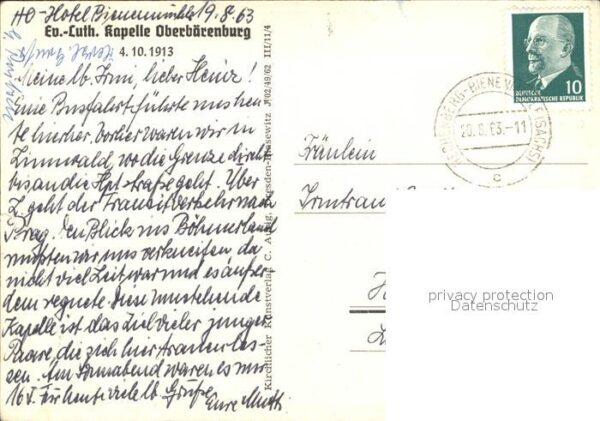 HO-Hotel Bienenmühle 19.8.63
Ev.-Luth. Kapelle Oberbärenburg
4.10.1913
Meine lb. Irmi, lieber Heinz!
Eine Busfahrt führte uns heu-
te hierher. Vorher waren wir in
Zinnwald, wo die Grenze direkt
bis an die Hptstraße geht. Über
Z. geht der Transitverkehr nach
Prag. Den Blick ins Böhmerland
mußten wir uns verkneifen, da
nicht viel Zeit war und es außer-
dem regnete. Diese umstehende
Kapelle ist das Ziel vieler junger
Paare, die sich hier trauen las-
sen. Am Sonnabend waren es nur
16. Für heute viele lb. Grüße
Eure Mutti
Kirchlicher Kunstverlag C. Aurig, Dresden-Blasewitz J 62/49/62 III/11/4
DEUTSCHE
DEMOKRATISCHE REPUBLIK
10
RECHENBERG-BIENENMÜHLE (SACHS)
20.8.63.-11
c
Fräulein
Irmtraud
privacy protection
Datenschutz